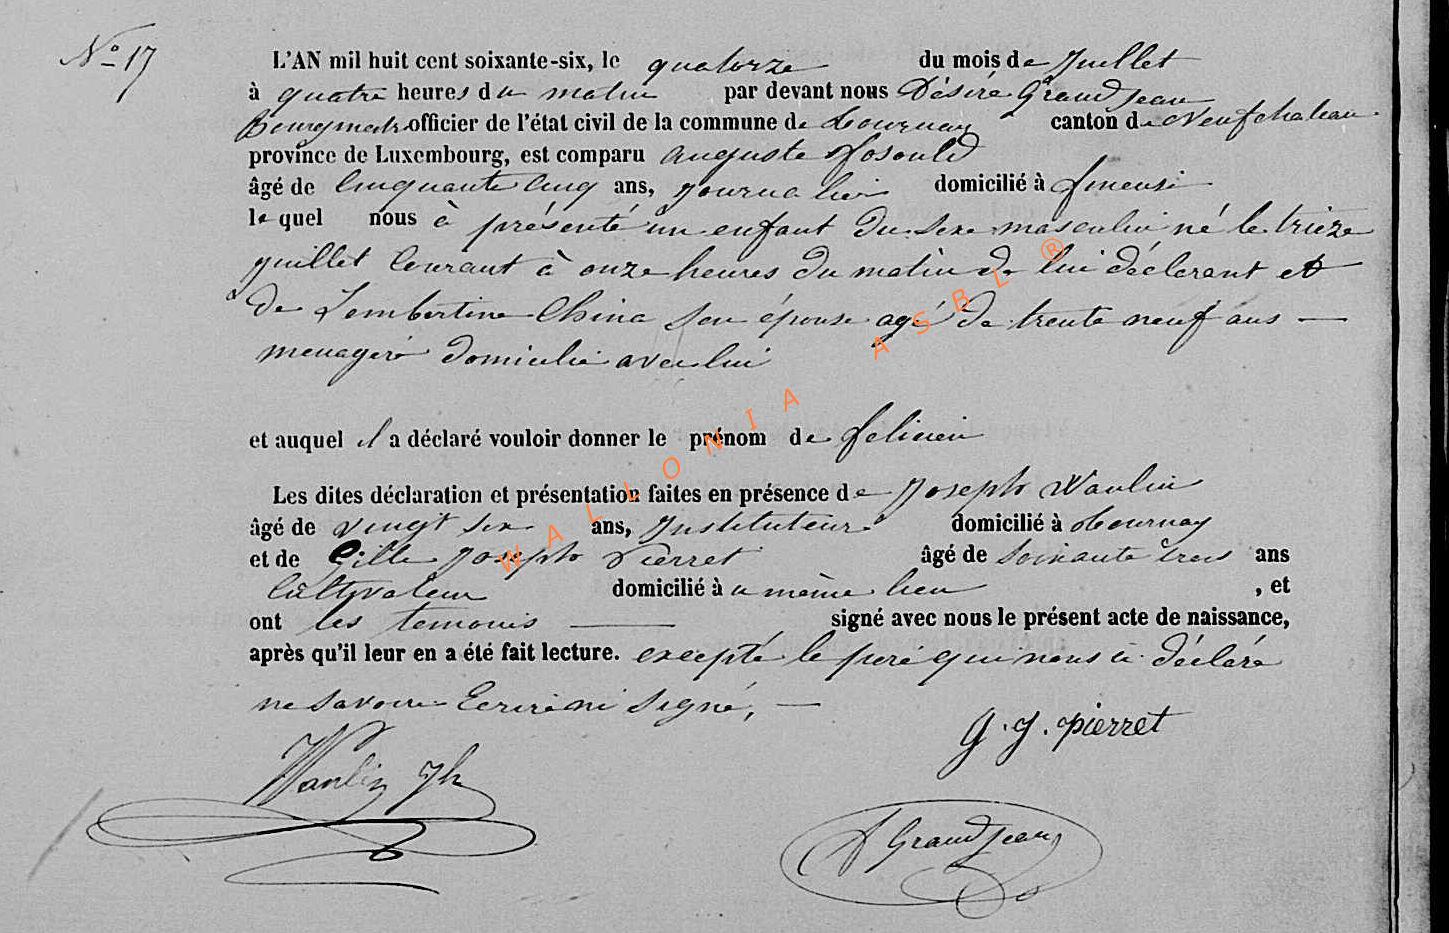 N° 17
L'AN mil huit cent soixante-six, le quatorze du mois de Juillet
à quatre heures du matin par devant nous Désiré GrandJean
Bourgmestre officier de l'état civil de la commune de Tournay canton de Neufchateau
province de Luxembourg, est comparu auguste
âgé de Cinquante Cinq ans, Journalier domicilié à
lequel nous à présenté un enfant du sexe masculin né le treize
juillet Courant à onze heures du matin de lui déclarant et
de Lambertine China son épouse agé de trente neuf ans —
menagère domicilié avec lui
et auquel il a déclaré vouloir donner le prénom de felicien
Les dites déclaration et présentation faites en présence de Joseph Wanlin
âgé de vingt six ans, Instituteur domicilié à Tournay
et de Gille Joseph Pierret âgé de soixante trois ans
Cultivateur domicilié au même lieu , et
ont les temoins — signé avec nous le présent acte de naissance,
après qu'il leur en a été fait lecture. excepté le peré qui nous à déclaré
ne savoir Ecrire ni signé, —
g. g. pierret
Wanlin Jh
D GrandJean
WALLONIA ASBL ®